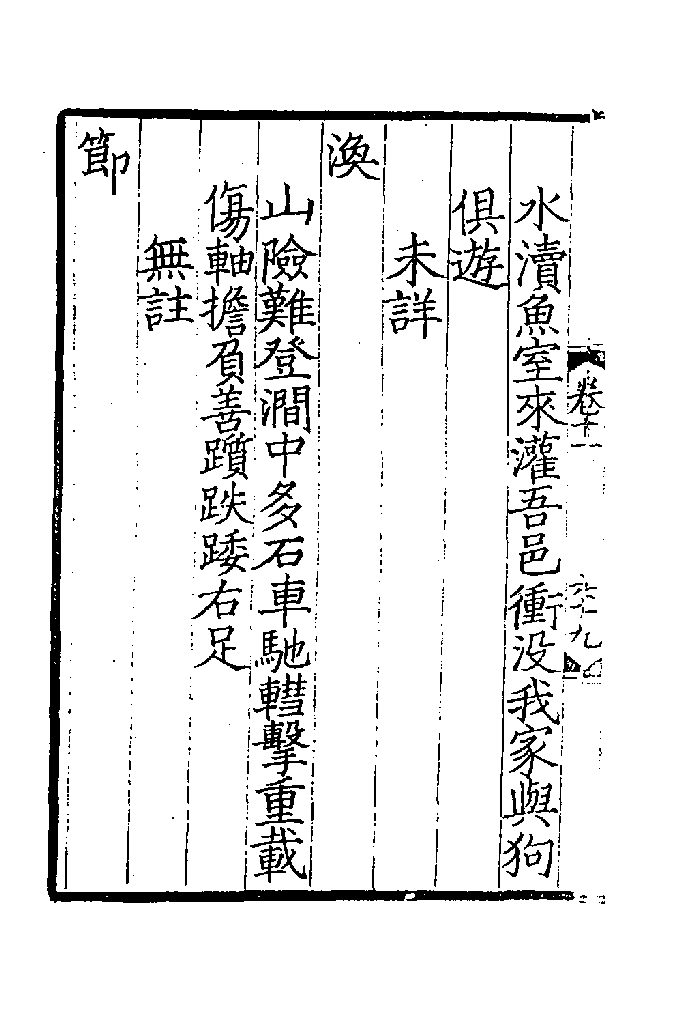 水瀆魚室來灌吾邑衝没我家與狗
俱遊
未詳
渙
山險難登澗中多石車馳轊擊重載
傷軸擔負善躓跌踒右足
無註
節
卷十一